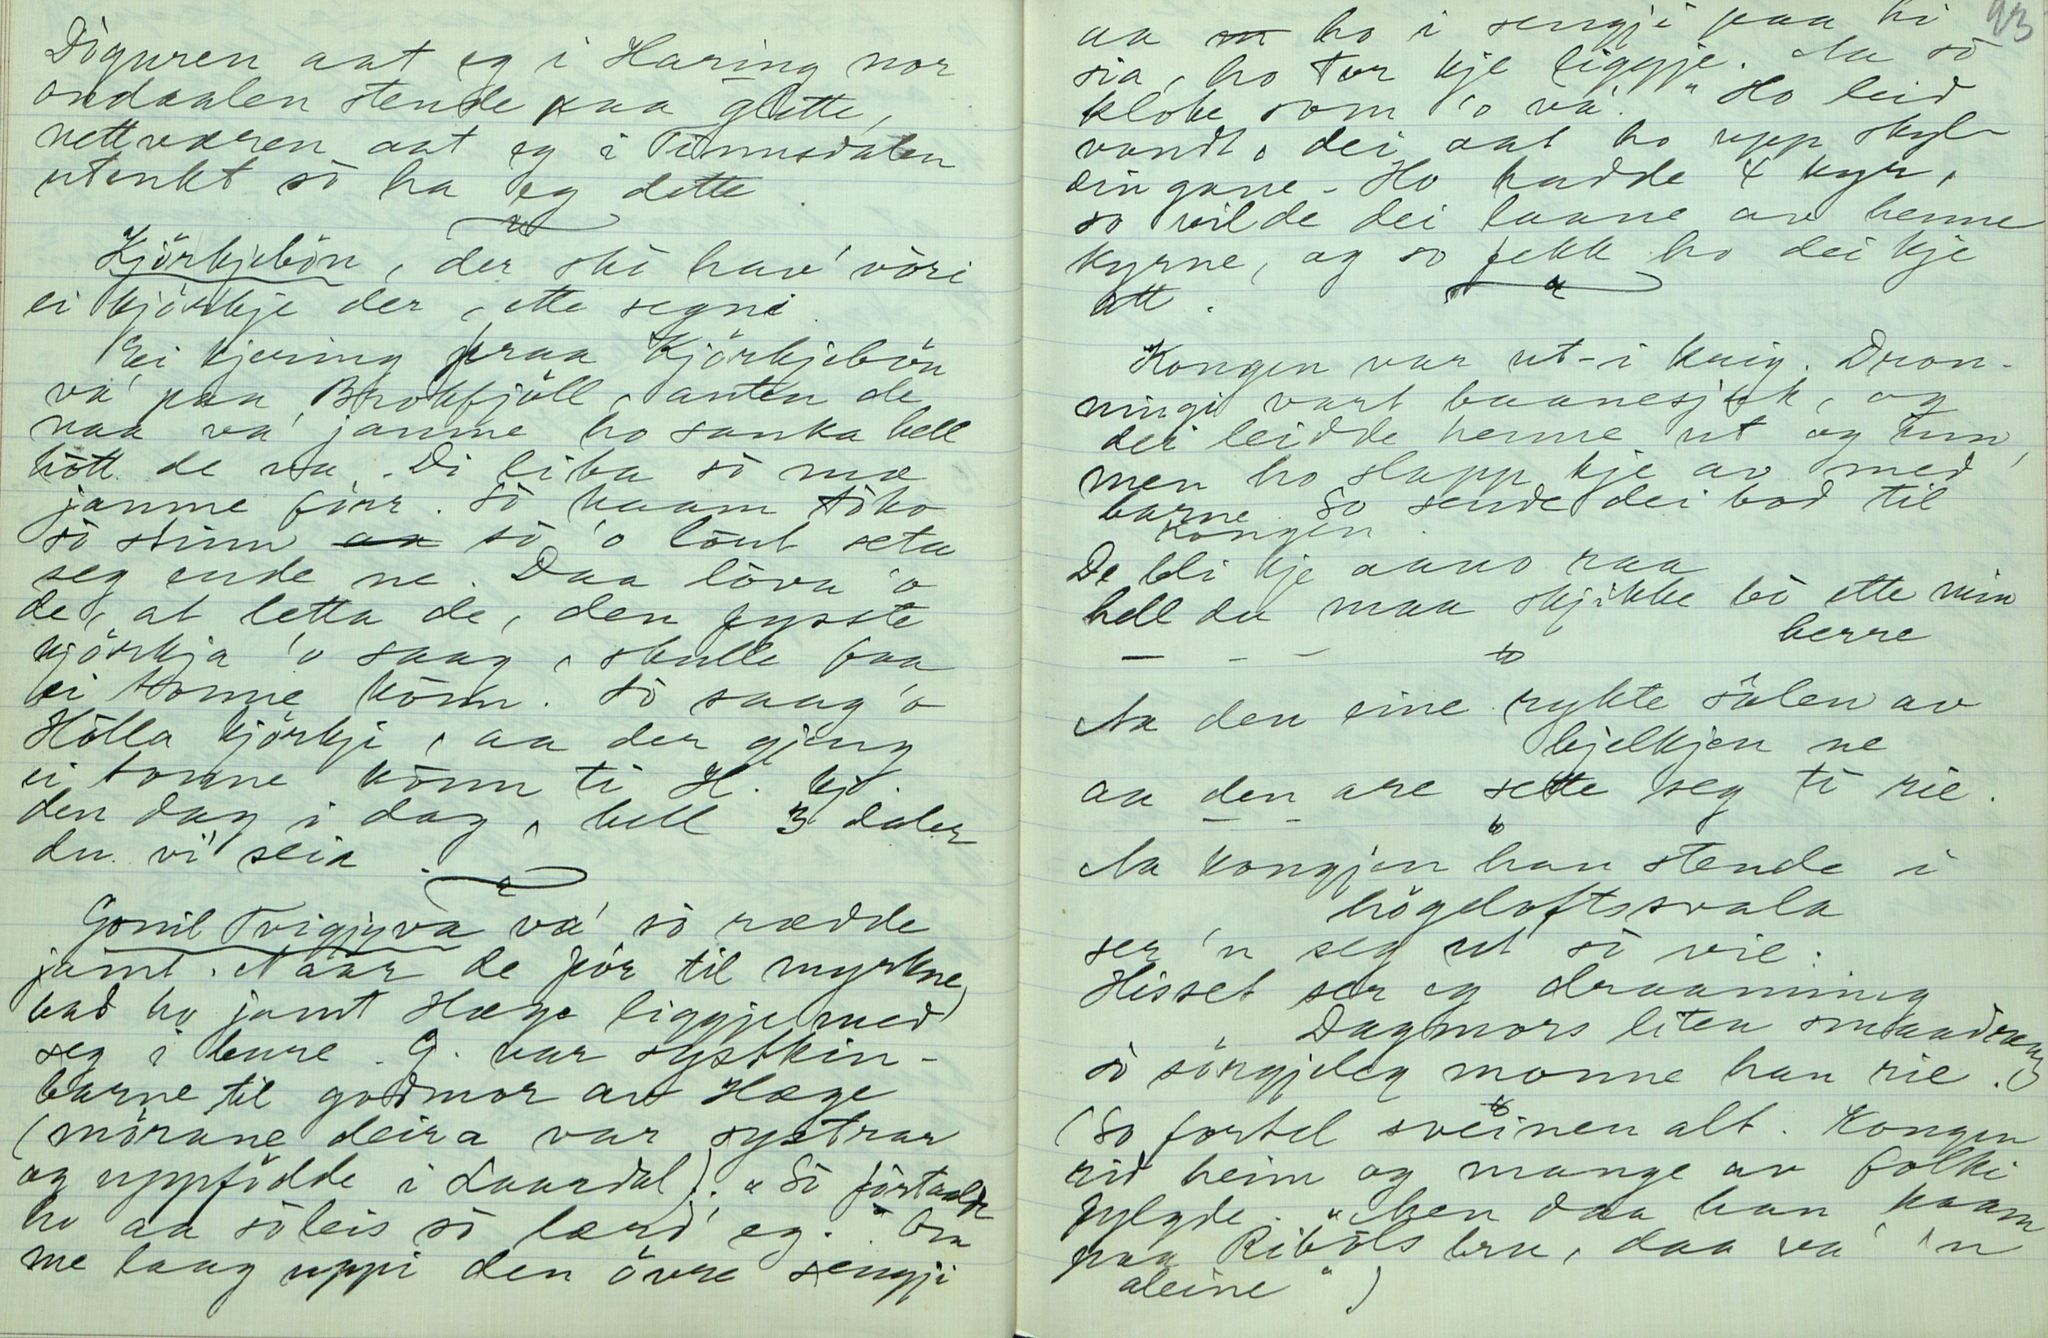 Döguren aat eg i Haring nor
ondaalen stende paa glette,
nettværen aat eg i Tinnsdalen
utenkt sò ha eg dette.
Kjörkjebön, der ska hav' vòri
ei kjörkje der, ette segni.
Ei kjering fraa Kjörkjebön
va' paa Brokfjöll, anten de
naa va' jamne ho sanka hell
hòtt de va. Di liba sò mæ
jamne förr. Sò kaam
sò stinn sò 'o lout seta
seg ende ne. Daa lova 'o
de, at letta de, den fysste
kjörkja 'o saag, skulle faa
ei tonne könn. Sò saag 'o
Hölla kjörkji, aa der gjeng
ei tonne könn ti H. kj.
den dag i dag, hell 3 daler
du vi' seia.
Gonil Tvigjyva va' sò rædde
jamt. Naar de fór til myrkne,
bad ho jamt Hæge liggje med
seg i bure. G. var systkin-
barne til godmor av Hæge
(mòrane deira var systrar
og uppfödde i Laardal). "Sò fòrtalde
ho aa sòleis sò lærd' eg.
me laag uppi den övre sengji
93
aa ho i sengji paa hi
sia, ho tor kje liggje. Aa sò
kloke som 'o va'." Ho leid
vondt, dei aat ho upp skyl-
dingane. Ho hadde 4 kyr,
so vilde dei laane av henne
kyrne, og so fekk ho dei kje
att.
Kongen var ut i krig. Dron-
ningi vart baanesjuk, og
dei leidde henne ut og inn,
men ho slapp kje av med
barne. So sende dei bod til
kongen.
De bli kje aano raa
hell du maa skjikke bò ette min
herre
Aa den eine rykte sålen av
bjelkjen ne
aa den are sette seg ti rie.
Aa kongjen han stende i
högeloftssvala
ser 'n seg ut sò vie.
Hisset ser eg draanning
Dagmors liten smaadræng
sò sörgjeleg monne han rie.
(So fortel sveinen alt. Kongen
rid heim og mange av folki
fylgde. "Men daa han kaam
paa Ribòls bru, daa va' 'n
aleine")